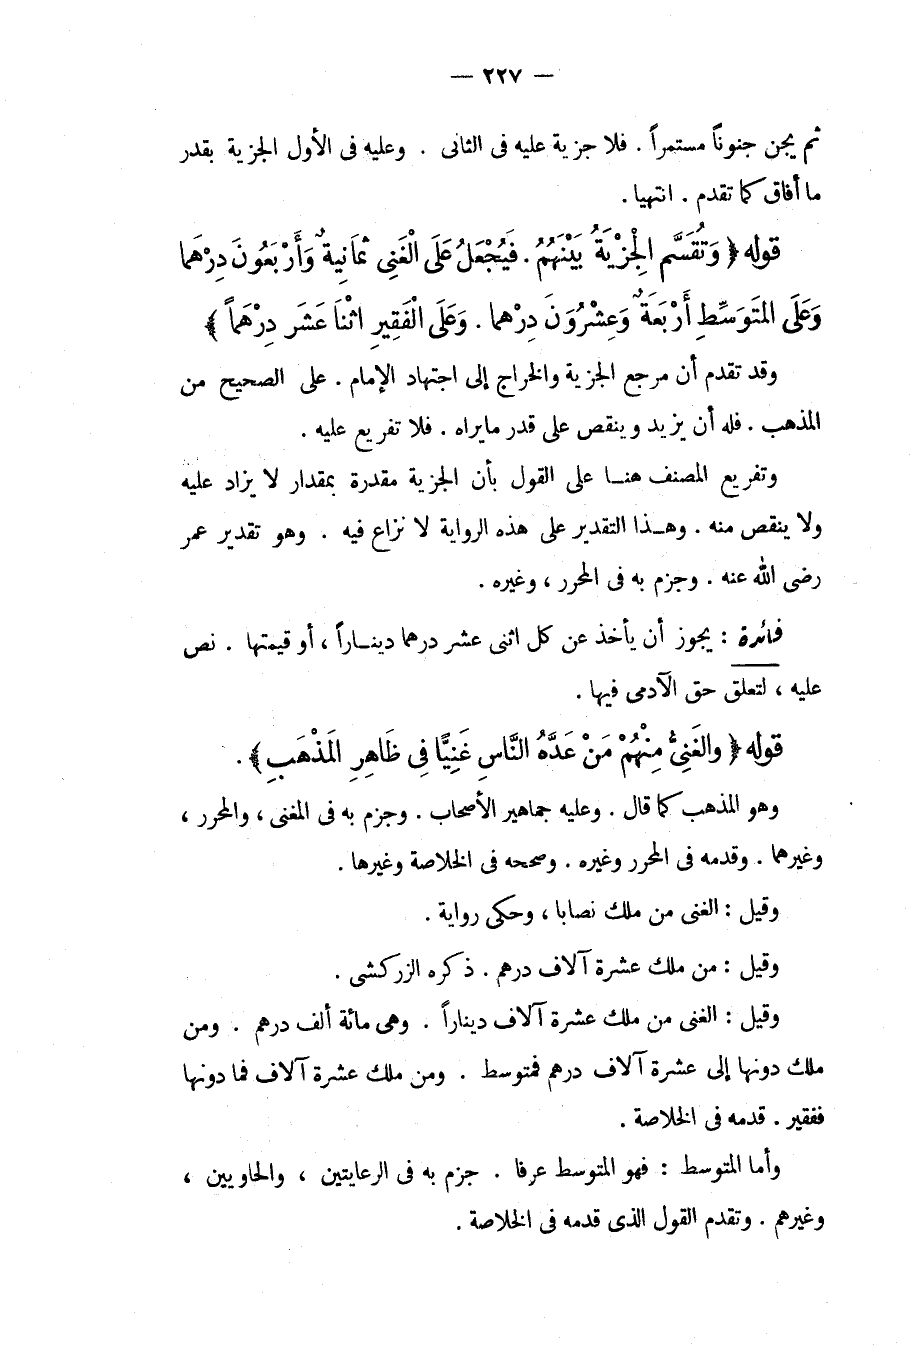 — ٢٢٧ —
ثم يجن جنوناً مستمراً . فلا جزية عليه فى الثانى . وعليه فى الأول الجزية بقدر
ما أفاق كما تقدم . انتهيا .
قوله ﴿ وَتُقَسَّم الْجِزْيَةُ بَيْنَهُمْ . فَيُجْعَلُ عَلَى الْغَنِى ثمَانِيةٌ وَأَرْبَعُونَ دِرْهَما
وَعَلَى المْتَوَسِّطِ أَرْبَعَةٌ وَعِشْرُونَ دِرْهما . وَعَلَى الْفَقِيرِ اثْنَا عَشَر دِرْهَماً ﴾
وقد تقدم أن مرجع الجزية والخراج إلى اجتهاد الإمام . على الصحيح من
المذهب . فله أن يزيد وينقص على قدر مايراه . فلا تفريع عليه .
وتفريع المصنف هنا على القول بأن الجزية مقدرة بمقدار لا يزاد عليه
ولا ينقص منه . وهذا التقدير على هذه الرواية لا نزاع فيه . وهو تقدير عمر
رضى الله عنه . وجزم به فى المحرر ، وغيره .
فائدة : يجوز أن يأخذ عن كل اثنى عشر درهما ديناراً ، أو قيمتها . نص
عليه ، لتعلق حق الآدمى فيها .
قوله ﴿ والغَنِىُّ مِنْهُمْ مَنْ عَدَّهُ النَّاسِ غَنِيًّا فِى ظَاهِرِ الَمذْهَبِ ﴾ .
وهو المذهب كما قال . وعليه جماهير الأصحاب . وجزم به فى المغنى ، والمحرر ،
وغيرهما . وقدمه فى المحرر وغيره . وصححه فى الخلاصة وغيرها .
وقيل : الغنى من ملك نصابا ، وحكى رواية .
وقيل : من ملك عشرة آلاف درهم . ذكره الزركشى .
وقيل : الغنى من ملك عشرة آلاف ديناراً . وهى مائة ألف درهم . ومن
ملك دونها إلى عشرة آلاف درهم فمتوسط . ومن ملك عشرة آلاف فما دونها
ففقير . قدمه فى الخلاصة .
وأما المتوسط : فهو المتوسط عرفا . جزم به فى الرعايتين ، والحاويين ،
وغيرهم . وتقدم القول الذى قدمه فى الخلاصة .